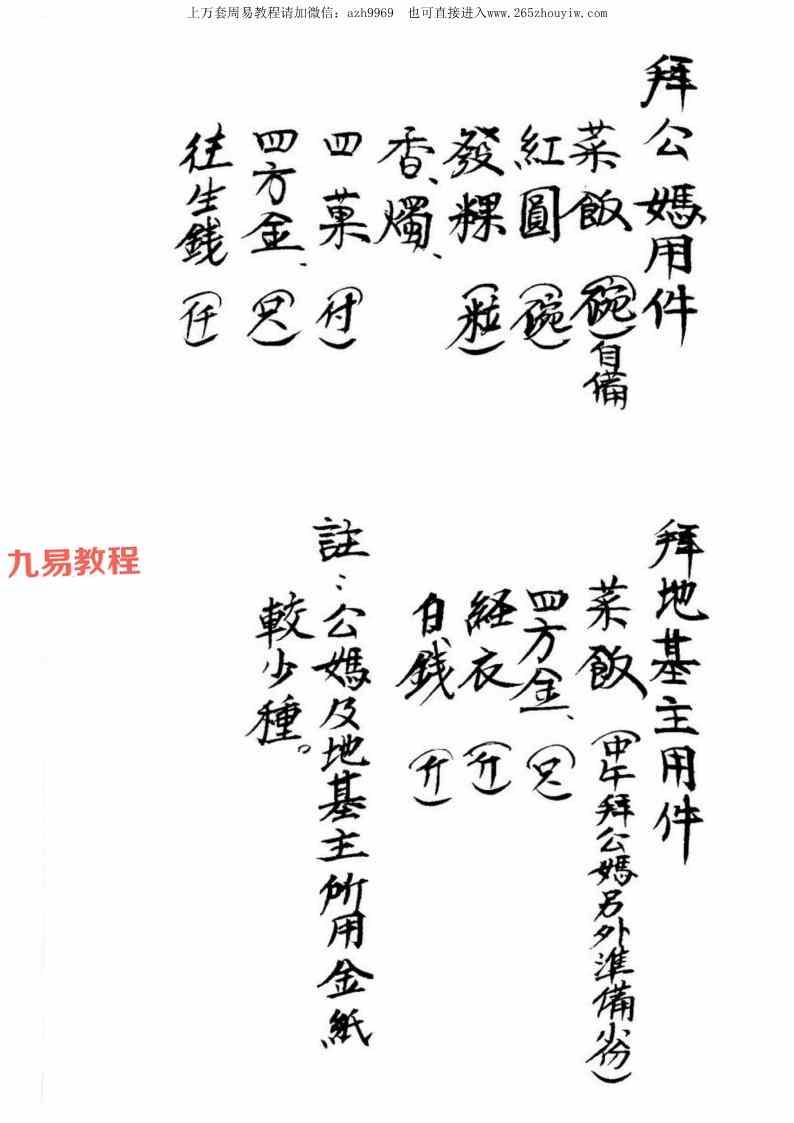 上万套周易教程请加微信：azh9969 也可直接进入www.265zhouyiw.com
拜公媽用件
菜飯（碗）自備
紅圓（碗）
發粿（粒）
香、燭、
四菓（付）
四方金、（只）
往生錢（仟）
拜地基主用件
菜飯（中午拜公媽另外準備小份）
四方金、（只）
経衣（斤）
白錢（斤）
註：公媽及地基主所用金紙
較少種。
九易教程